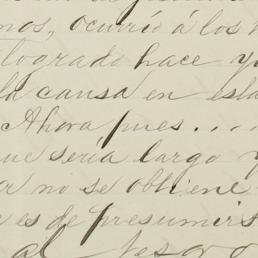 mos, ocurrió á los
logrado hace
la causa en esta
Ahora pues....
que sería largo y
no se obtiene
es de presumirs
al tesoro